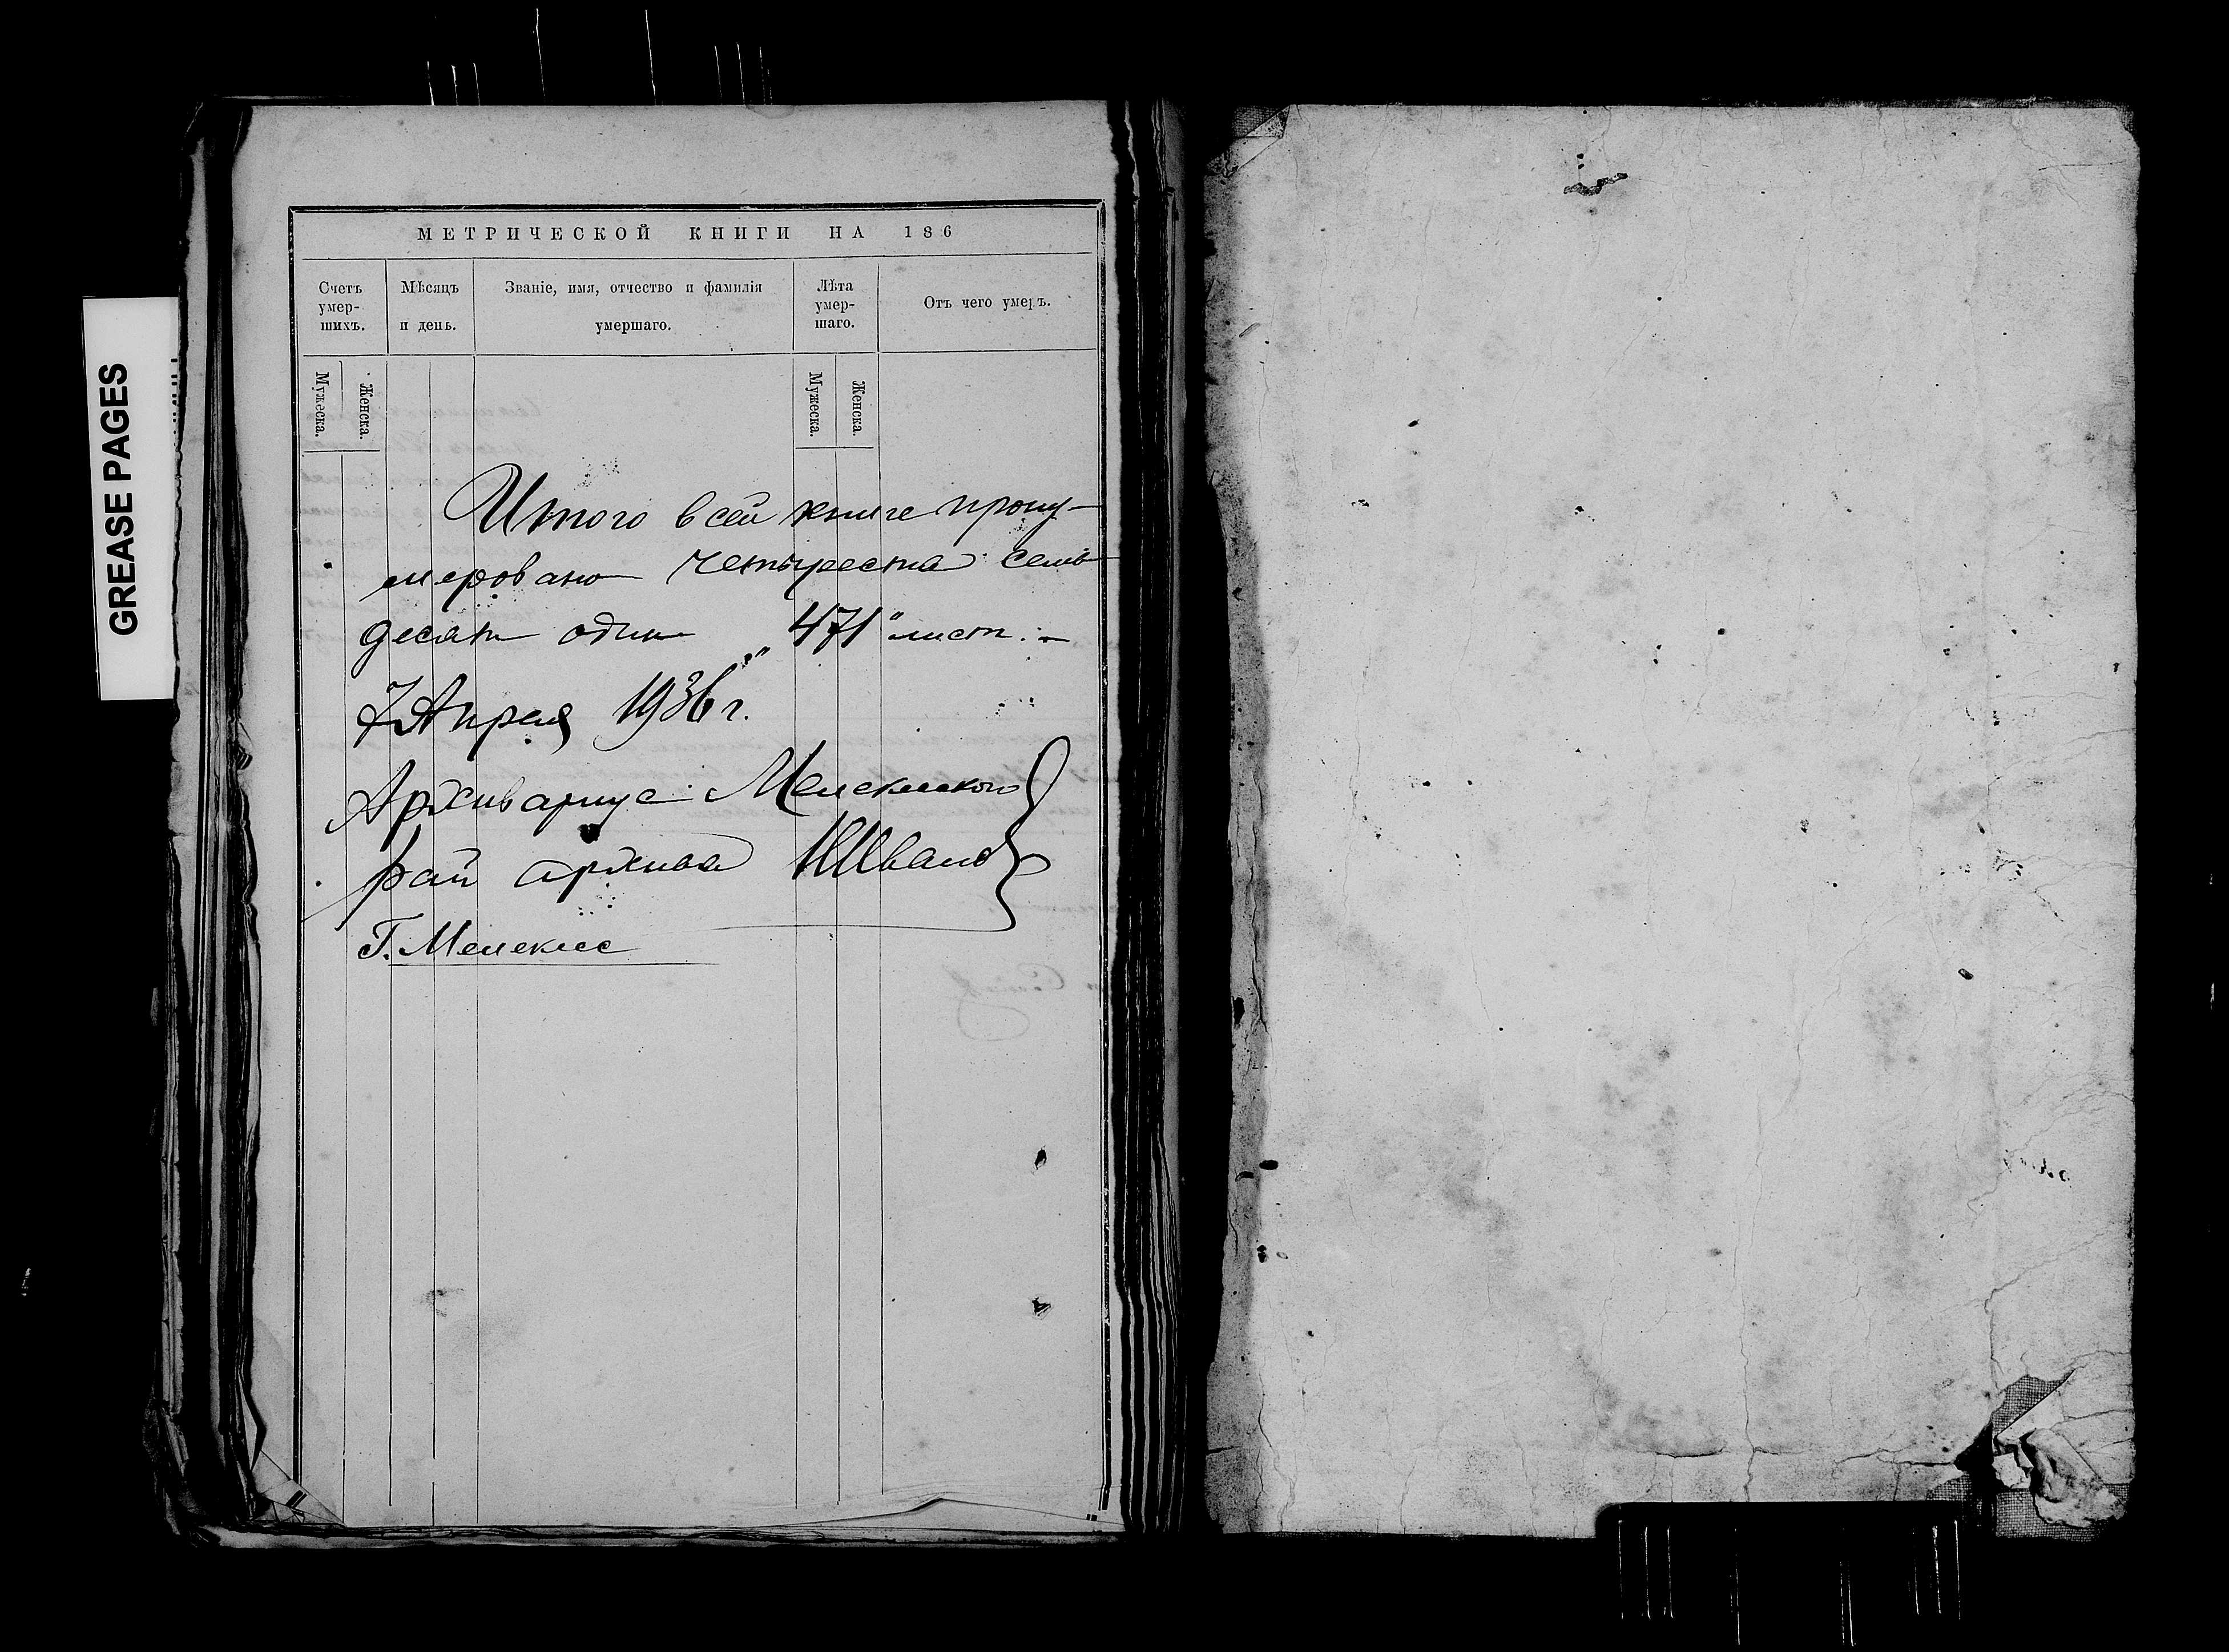 GREASE PAGES
МЕТРИЧЕСКОЙ КНИГИ НА 186
Счетъ умер-шихъ.
Мѣсяцъ и день.
Званіе, имя, отчество и фамилія умершаго.
Лѣта умер-шаго.
Отъ чего умеръ.
Мужеска.
Женска.
Мужеска.
Женска.
Итого в сей книге прону-
мировано четыреста семь
десят один "471" лист. –
7 Апреля 1936 г.
Архивариус Мелекесского
рай архива
Г. Мелекесс